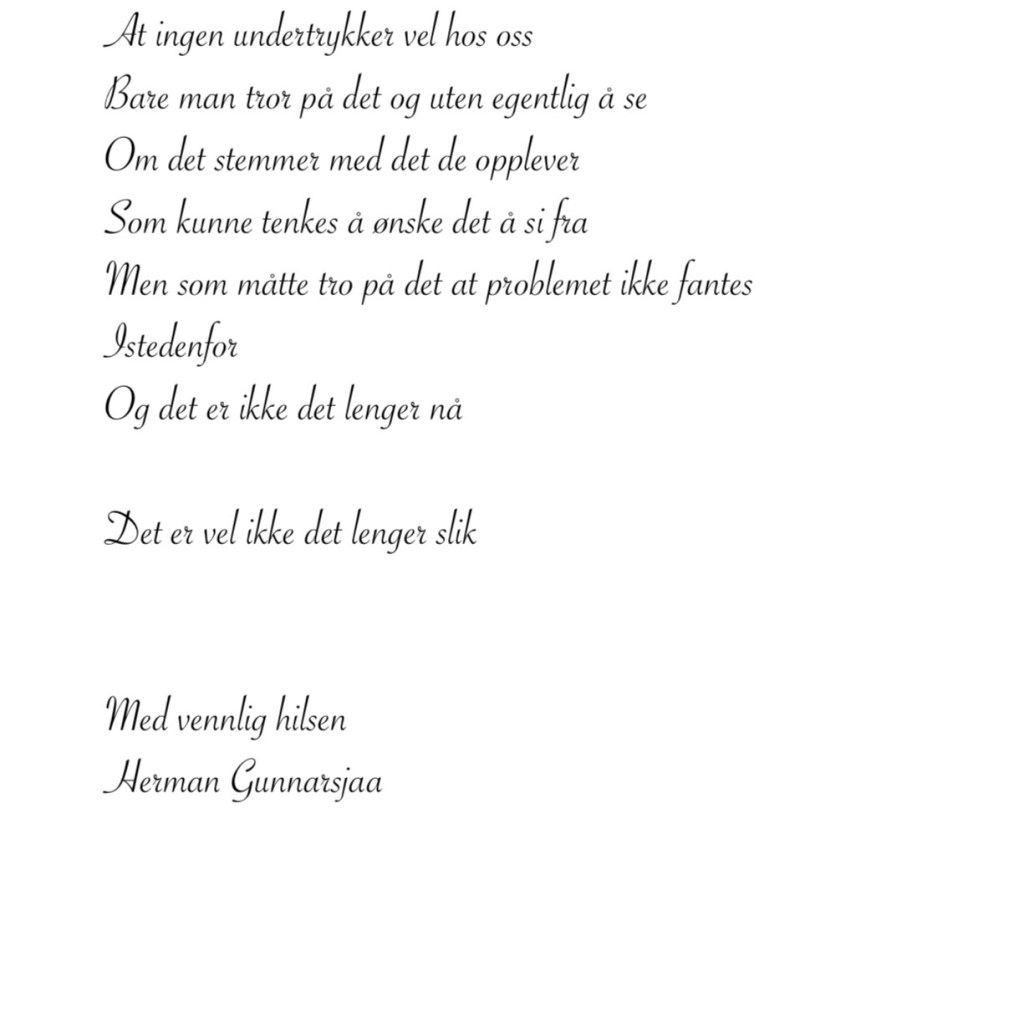 At ingen undertrykker vel hos oss
Bare man tror på det og uten egentlig å se
Om det stemmer med det de opplever
Som kunne tenkes å ønske det å si fra
Men som måtte tro på det at problemet ikke fantes
Istedenfor
Og det er ikke det lenger nå
Det er vel ikke det lenger slik
Med vennlig hilsen
Herman Gunnarsjaa